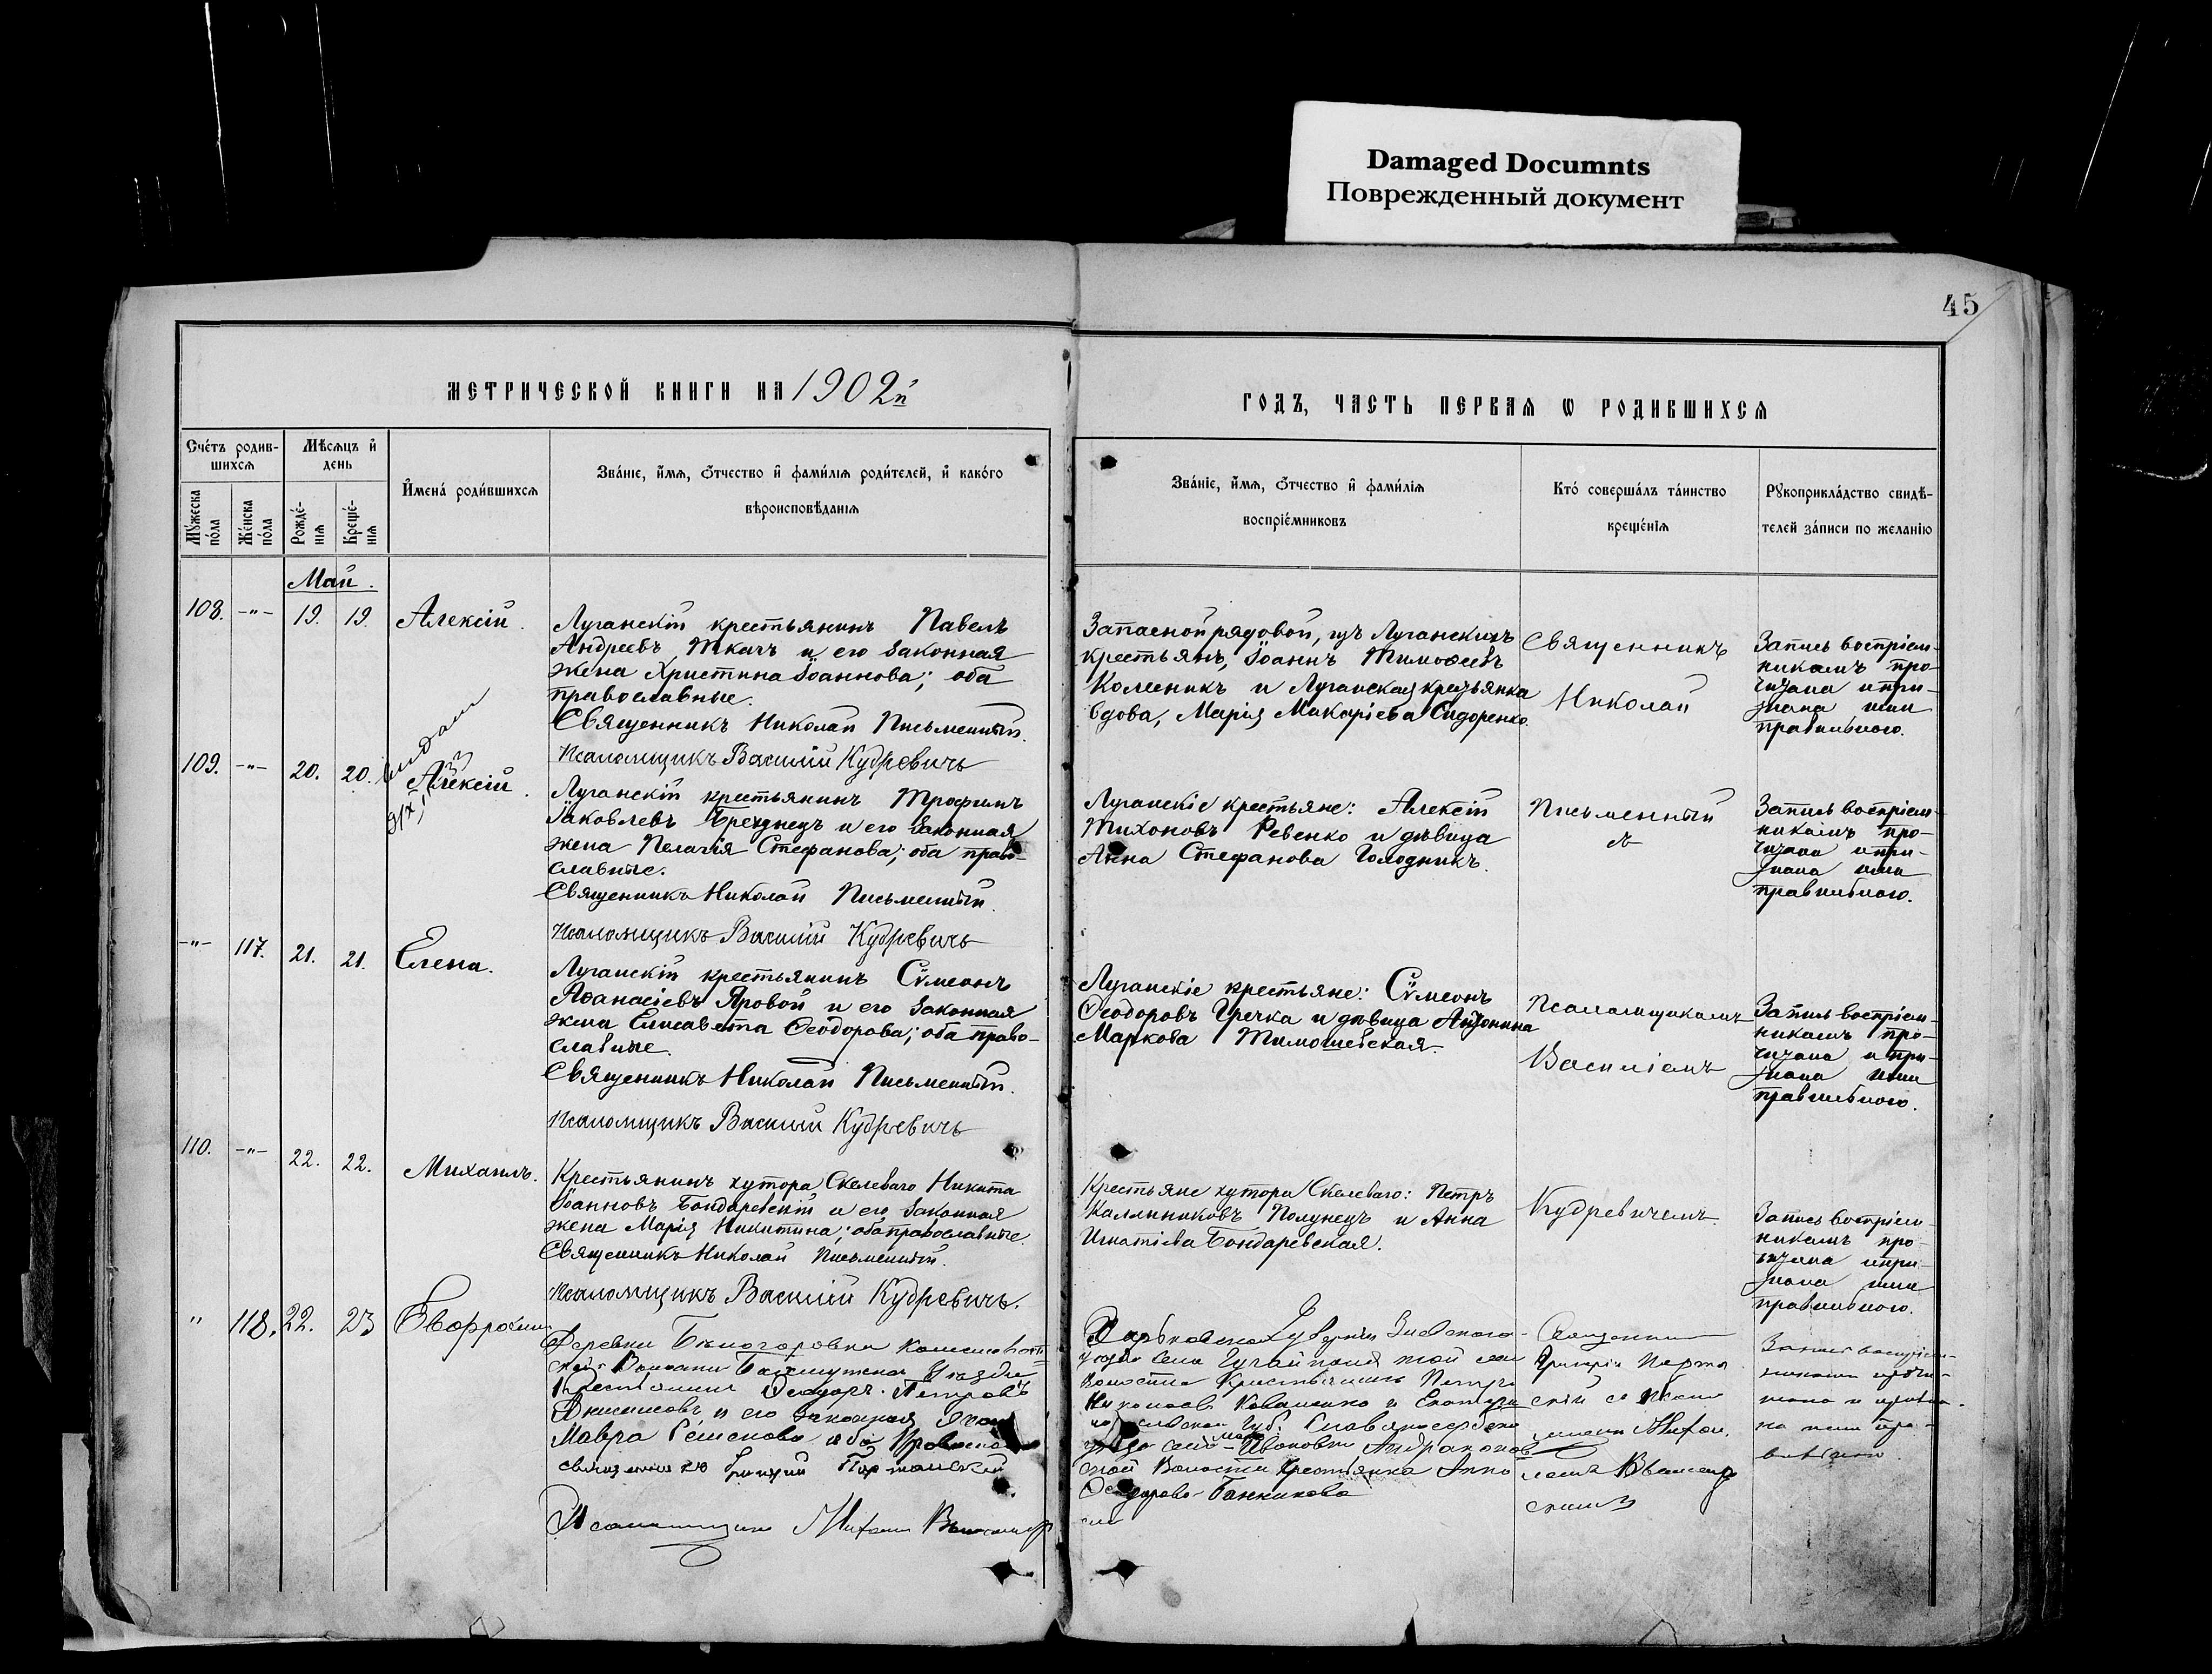 Damaged Documnts
Поврежденный документ
45
МЕТРИЧЕСКОЙ КНИГИ НА 1902й
ГОДЪ, ЧАСТЬ ПЕРВАЯ Ѡ РОДИВШИХСЯ
Сче́тъ родив-
шихся
Мѣсяцъ и҆
день
Мꙋ́жеска
по́ла
Же́нска
по́ла
Рожде́-
нїя
Креще́-
нїя
И҆мена̀ роди́вшихся
Зва́нїе, и҆́мя, ѻ҆́тчество и҆ фами́лїя роди́телей, и҆ како́го
вѣроисповѣ́данїя
Зва́нїе, и҆́мя, ѻ҆́тчество и҆ фами́лїя
воспрїе́мниковъ
Кто̀ соверша́лъ та́инство
креще́нїя
Рꙋкоприкла́дство свидѣ́-
телей за́писи по желанїю
Май.
108. -"- 19. 19. Алексій.
Луганскій крестьянинъ Павелъ
Андреевъ Ткачъ и его законная
жена Христина Іоаннова; оба
православные.
Священникъ Николай Письменный.
Псаломщикъ Василій Кудревичъ
Запасной рядовой, изъ Луганскихъ
крестьянъ, Іоаннъ Тимофеевъ
Колесникъ и Луганская крестьянка
вдова, Марія Макаріева Сидоренко.
Священникъ
Николай
Запись воспріем-
никамъ про-
читана и при-
знана ими
правильною.
109. -"- 20. 20. Алексій.
Луганскій крестьянинъ Трофимъ
Іаковлевъ и его законная
жена Пелагія Стефанова; оба право-
славные.
Священникъ Николай Письменный.
Псаломщикъ Василій Кудревичъ
Луганскіе крестьяне: Алексій
Тихоновъ Ревенко и дѣвица
Анна Стефанова Голодникъ.
Письменный
съ
Запись воспріем-
никамъ про-
читана и при-
знана ими
правильною.
-"- 117. 21. 21. Елена.
Луганскій крестьянинъ Сѵмеонъ
Аѳанасіевъ Яровой и его законная
жена Елисавета Ѳеодорова; оба право-
славные.
Священникъ Николай Письменный.
Псаломщикъ Василій Кудревичъ
Луганскіе крестьяне: Сѵмеонъ
Ѳеодоровъ Гречка и дѣвица Антонина
Маркова Тимошевская.
Псаломщикомъ
Василіемъ
Запись воспріем-
никамъ про-
читана и при-
знана ими
правильною.
110. -"- 22. 22. Михаилъ.
Крестьянинъ хутора Скелеваго Никита
Іоанновъ Бондаревскій и его законная
жена Марія Никитина; оба православные.
Священникъ Николай Письменный.
Псаломщикъ Василій Кудревичъ.
Крестьяне хутора Скелеваго: Петръ
Каллиниковъ Полунецъ и Анна
Игнатіева Бондаревская.
Кудревичемъ.
Запись воспріем-
никамъ про-
читана и при-
знана ими
правильною.
" 118. 22. 23
Деревни Бѣлогоровки
Волости Бахмутскаго Уѣзда
Крестьянинъ Ѳеодоръ Петровъ
и его законная жена
Мавра Семенова оба
священникъ Григорій
Псаломщикъ Михаилъ
Харьковской Губерніи Зміевского
уѣзда села той же
волости Крестьянинъ Петръ
Николаевъ Коваленко и Екатери
Губ. Славяносербского
уѣзда села Ивановки
волости крестьянка Анна
Ѳеодорова Банникова
Священник
Григорій